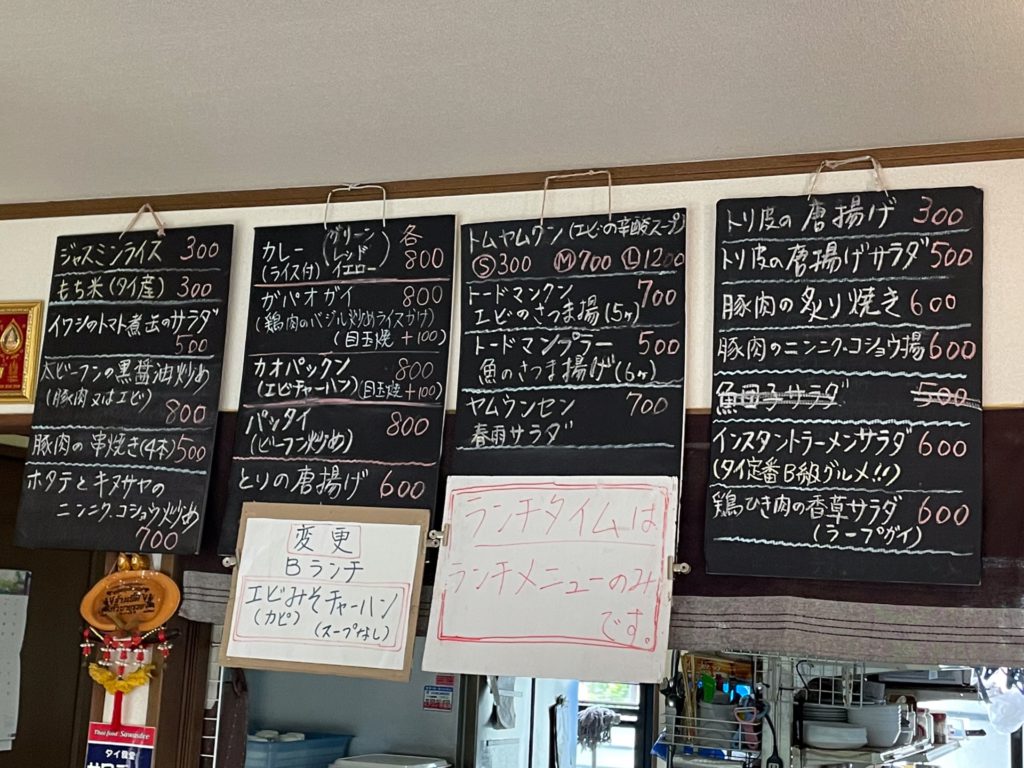 ジャスミンライス 300
もち米(タイ産) 300
イワシのトマト煮缶のサラダ
500
太ビーフンの黒醤油炒め
(豚肉又はエビ) 800
豚肉の串焼き(4本) 500
ホタテとキヌサヤの
ニンニク.コショウ炒め
700
カレー (グリーン レッド イエロー) 各
(ライス付) 800
ガパオガイ 800
(鶏肉のバジル炒めライスがけ)
(目玉焼 +100)
カオパックン 800
(エビチャーハン) (目玉焼 +100)
パッタイ 800
(ビーフン炒め)
とりの唐揚げ 600
トムヤムクン (エビの辛酸スープ)
Ⓢ300 Ⓜ700 Ⓛ1200
トードマンクン 700
エビのさつま揚(5ヶ)
トードマンプラー 500
魚のさつま揚げ(6ヶ)
ヤムウンセン 700
春雨サラダ
トリ皮の唐揚げ 300
トリ皮の唐揚げサラダ 500
豚肉の炙り焼き 600
豚肉のニンニク.コショウ揚 600
魚団子サラダ 500
インスタントラーメンサラダ 600
(タイ定番B級グルメ!!)
鶏ひき肉の香草サラダ 600
(ラープガイ)
変更
Bランチ
エビみそチャーハン
(カピ) (スープなし)
ランチタイムは
ランチメニューのみ
です。
Thai food Sawadee
タイ食堂